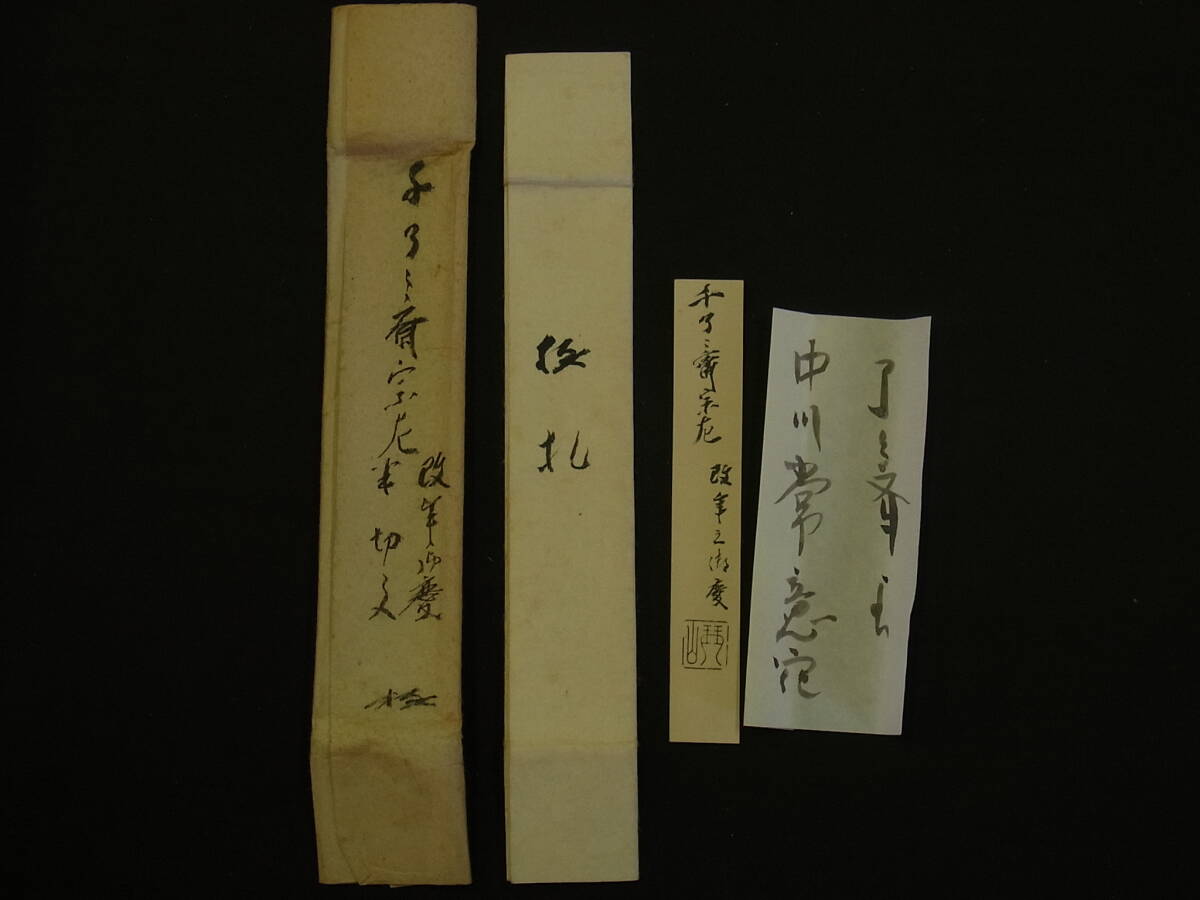 千了々斎宗左
改年御慶
半切文
極
極札
千了々斎宗左 改年之御慶
了々斎
中川常意宛